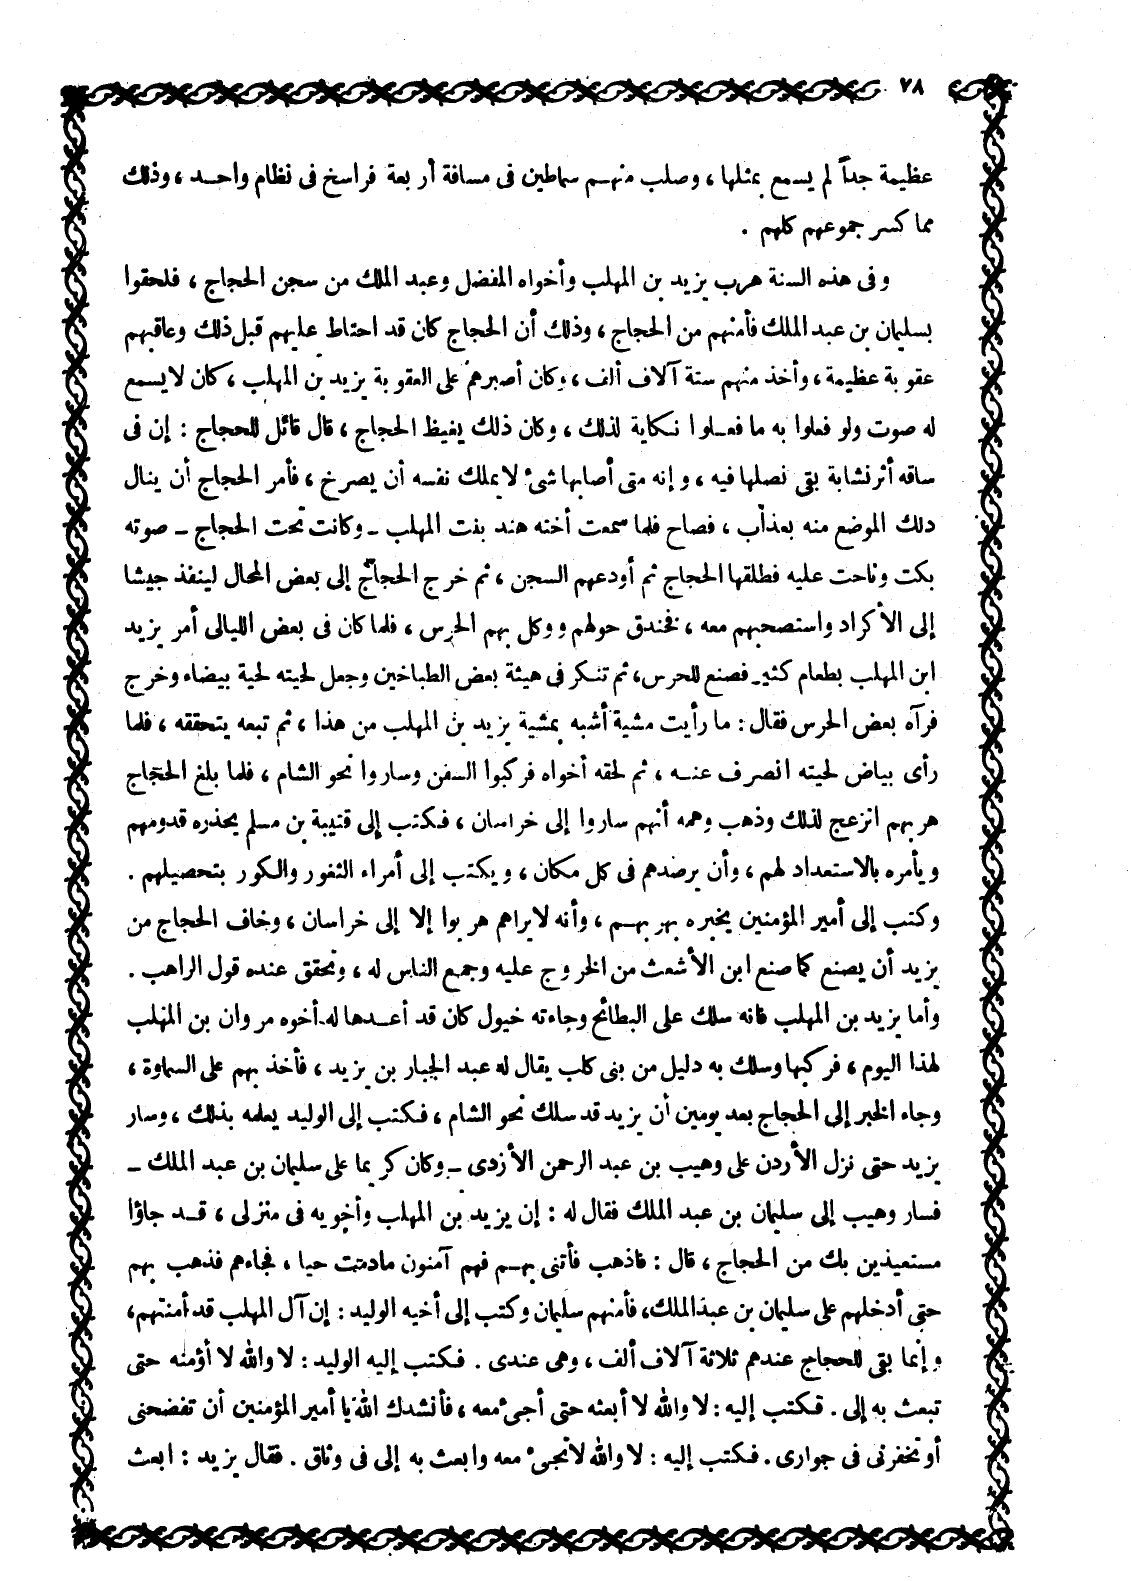 ٧٨
عظيمة جداً لم يسمع بمثلها ، وصلب منهم سماطين فى مسافة أربعة فراسخ فى نظام واحد ، وذلك
مما كسر جموعهم كلهم .
وفى هذه السنة هرب يزيد بن المهلب وأخواه المفضل وعبد الملك من سجن الحجاج ، فلحقوا
بسليمان بن عبد الملك فأمنهم من الحجاج ، وذلك أن الحجاج كان قد احتاط عليهم قبل ذلك وعاقبهم
عقوبة عظيمة ، وأخذ منهم ستة آلاف ألف ، وكان أصبرهم على العقوبة يزيد بن المهلب ، كان لا يسمع
له صوت ولو فعلوا به ما فعلوا نكاية لذلك ، وكان ذلك يغيظ الحجاج ، قال قائل للحجاج : إن فى
ساقه أثر نشابة بقى نصلها فيه ، وإنه متى أصابها شىء لا يملك نفسه أن يصرخ ، فأمر الحجاج أن ينال
ذلك الموضع منه بعذاب ، فصاح فلما سمعت أخته هند بنت المهلب ـ وكانت تحت الحجاج ـ صوته
بكت وناحت عليه فطلقها الحجاج ثم أودعهم السجن ، ثم خرج الحجاج إلى بعض المحال لينفذ جيشا
إلى الأكراد واستصحبهم معه ، فخندق حولهم ووكل بهم الحرس ، فلما كان فى بعض الليالى أمر يزيد
ابن المهلب بطعام كثير فصنع للحرس، ثم تنكر فى هيئة بعض الطباخين وجعل لحيته لحية بيضاء وخرج
فرآه بعض الحرس فقال : ما رأيت مشية أشبه بمشية يزيد بن المهلب من هذا ، ثم تبعه يتحققه ، فلما
رأى بياض لحيته انصرف عنه ، ثم لحقه أخواه فركبوا السفن وساروا نحو الشام ، فلما بلغ الحجاج
هربهم انزعج لذلك وذهب وهمه أنهم ساروا إلى خراسان ، فكتب إلى قتيبة بن مسلم يحذره قدومهم
ويأمره بالاستعداد لهم ، وأن يرصدهم فى كل مكان ، ويكتب إلى أمراء الثغور والكور بتحصيلهم .
وكتب إلى أمير المؤمنين يخبره بهربهم ، وأنه لا يراهم هربوا إلا إلى خراسان ، وخاف الحجاج من
يزيد أن يصنع كما صنع ابن الأشعث من الخروج عليه وجمع الناس له ، وتحقق عنده قول الراهب .
وأما يزيد بن المهلب فانه سلك على البطائح وجاءته خيول كان قد أعدها له أخوه مروان بن المهلب
لهذا اليوم ، فركبها وسلك به دليل من بنى كلب يقال له عبد الجبار بن يزيد ، فأخذ بهم على السماوة ،
وجاء الخبر إلى الحجاج بعد يومين أن يزيد قد سلك نحو الشام ، فكتب إلى الوليد يعلمه بذلك ، وسار
يزيد حتى نزل الأردن على وهيب بن عبد الرحمن الأزدى ـ وكان كريما على سليمان بن عبد الملك ـ
فسار وهيب إلى سليمان بن عبد الملك فقال له : إن يزيد بن المهلب وأخويه فى منزلى ، قد جاؤا
مستعيذين بك من الحجاج ، قال : فاذهب فأتنى بهم فهم آمنون مادمت حيا ، فجاءهم فذهب بهم
حتى أدخلهم على سليمان بن عبدالملك، فأمنهم سليمان وكتب إلى أخيه الوليد : إن آل المهلب قد أمنتهم،
وإنما بقى للحجاج عندهم ثلاثة آلاف ألف ، وهى عندى . فكتب إليه الوليد : لا والله لا أؤمنه حتى
تبعث به إلى . فكتب إليه : لا والله لا أبعثه حتى أجىء معه ، فأنشدك الله يا أمير المؤمنين أن تفضحنى
أو تخفرنى فى جوارى . فكتب إليه : لا والله لا تجىء معه وابعث به إلى فى وثاق . فقال يزيد : ابعث